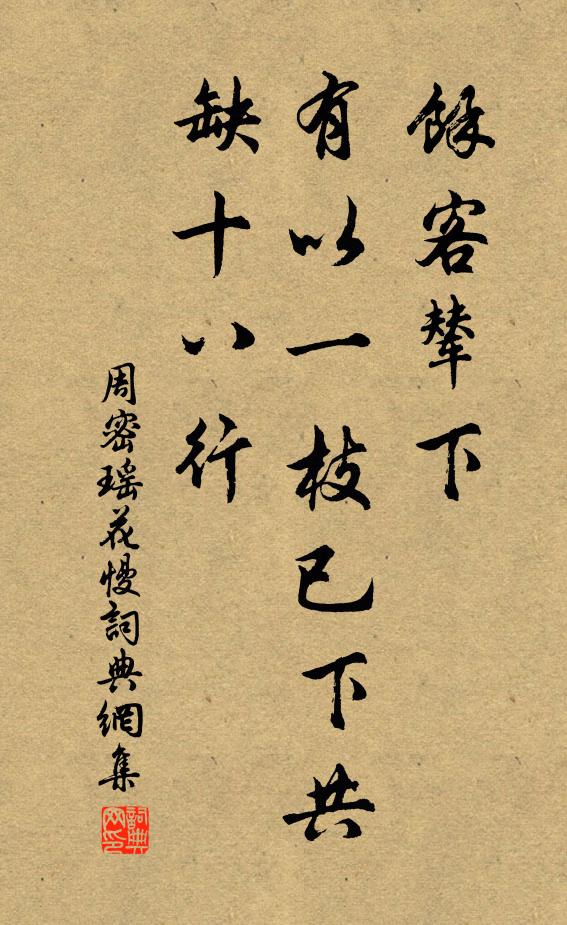 餘客輦下
有以一枝已下共
缺十八行
周密瑶花慢詞典網集
詞典网印